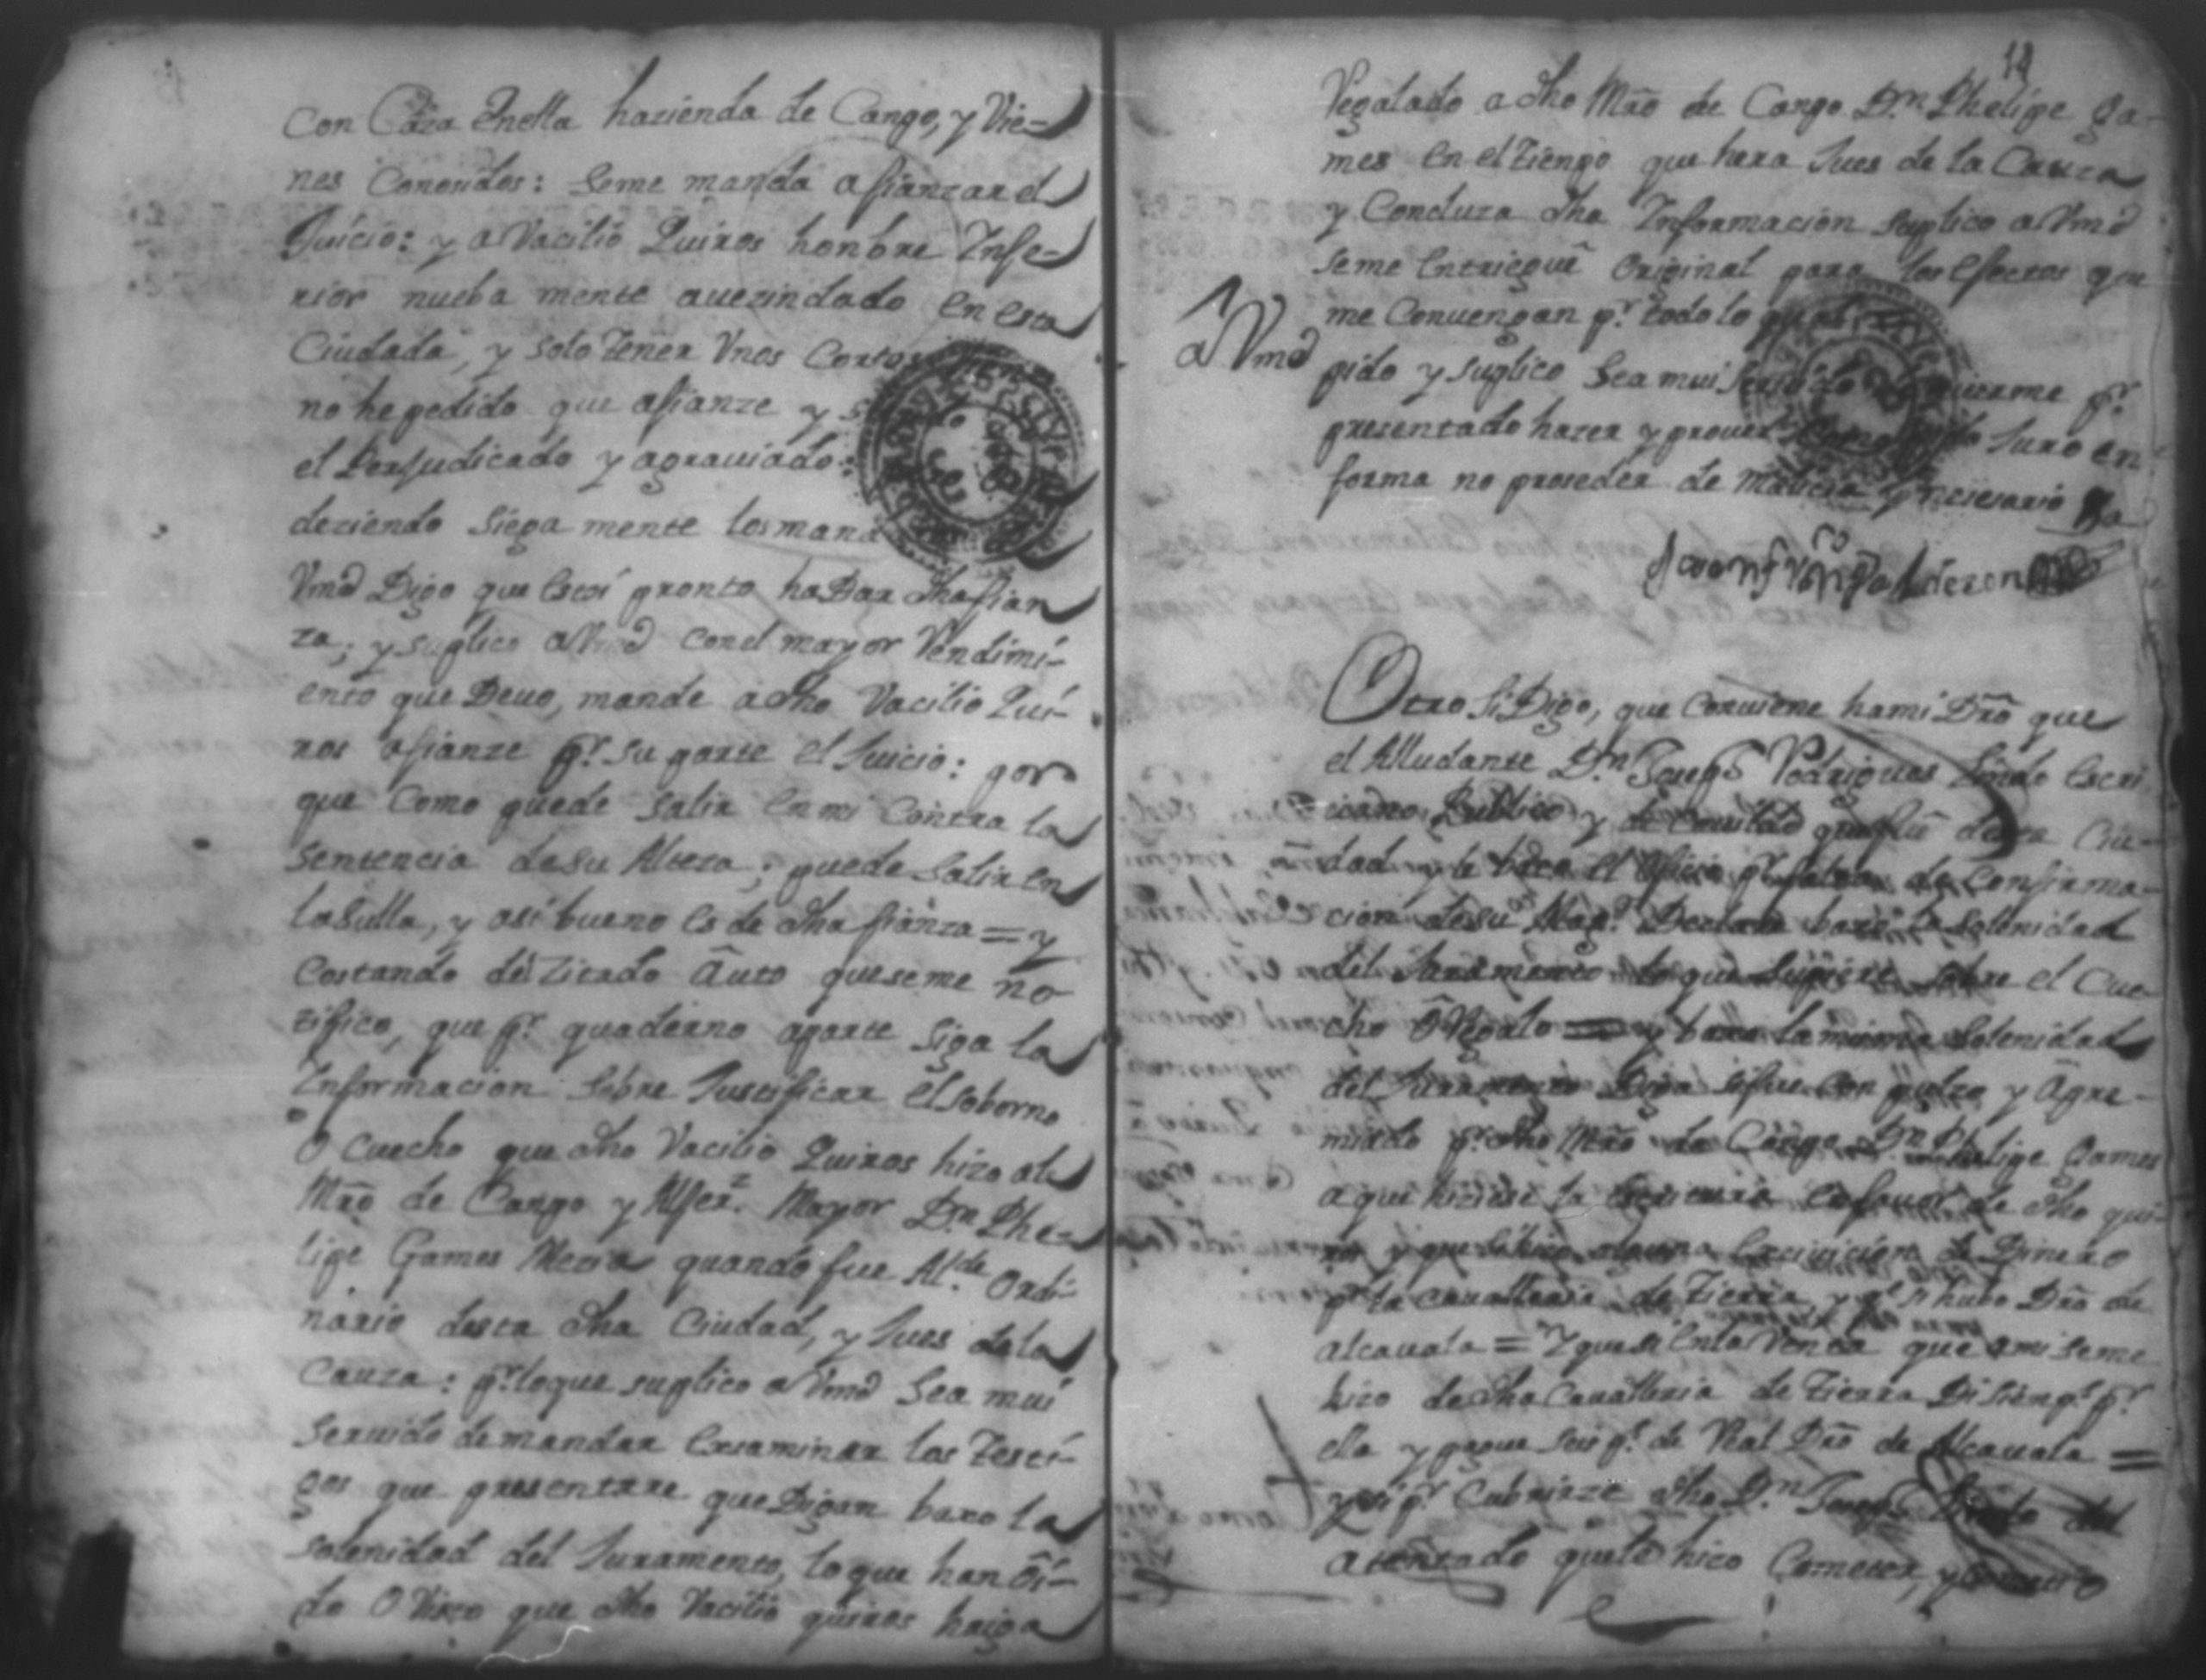 con Caza enella hazienda de Campo, y Vie-
nes Conosidos: seme manda afianzar el
Juicio: y a Vacilio Quiros honbre Infe-
rior nueba mente auezindado en esta
Ciudada, y solo tener Vnos Cortos
no he pedido que afianze y
el Perjudicado y agrauiado:
deziendo siega mente los mand
Vmd Digo que estoi pronto ha Dar dha fian
za; y suplico a Vmd con el mayor Rendimi-
ento que Deuo, mande a dho Vacilio Qui-
ros afianze pr. su parte el Juicio: por
que Como puede salir en mi Contra la
sentencia de su Alteza; puede salir en
la sulla, y asi bueno es de dha fianza = y
Costando del Zitado Auto que seme no
tifico, que pr. quaderno aparte siga la
Informacion sobre Justificar el soborno
o cuecho que dho Vacilio Quiros hizo al
Mro de Campo y Alferz. Mayor Dn. Phe-
lipe Games Mesia quando fue Alde. Ordi-
nario desta dha Ciudad, y Jues de la
Cauza: pr. lo que suplico a Vmd sea mui
seruido de mandar Exsaminar los Testi-
gos que presentare que Digan baxo la
solenidad del Juramento, lo que han Oi-
do O Visto que dho Vacilio quiros haiga
14
Regalado a dho Mro de Campo Dn. Phelipe Ga-
mes en el tienpo que hera Jues de la Cauza
y Conclusa dha Informacion suplico a Vmd
seme entriegue original para los efectos que
me Conuengan pr. todo lo qual
A Vmd pido y suplico sea mui seruido pr.
presentado hazer y proueer Juro en
forma no proseder de malicia y nesesario Va
Juan Calderon
Otro si Digo, que conuiene ha mi Dro que
el Alludante Dn. Joseph Rodrigues Lindo Escri
uano Publico y de Cauildo que fue desta Ciu-
dad y le baco el oficio pr. falta de confirma-
cion de su Magd. Declare baxo la solenidad
del Juramento lo que supiere sobre el Cue
cho O Regalo = y baxo la misma solenidad
del Juramento Diga si fue con pulso y Apre-
miado pr. dho Mro de Campo Dn. Phelipe Games
a que hiziese la Escritura a fauor de dho qui-
ros y que si hizo alguna Exciuicion de Dinero
pr. la caualleria de tierra, y si huuo Dro de
alcauala = Y que si en la Venta que a mi seme
hizo de dha Caualleria de tierra Di sien ps. pr.
ella y pague seis ps. de Real Dro de Alcauala =
y si pr. Cubrirze dho Dn. Joseph Lindo del
atentado que le hizo Cometer,